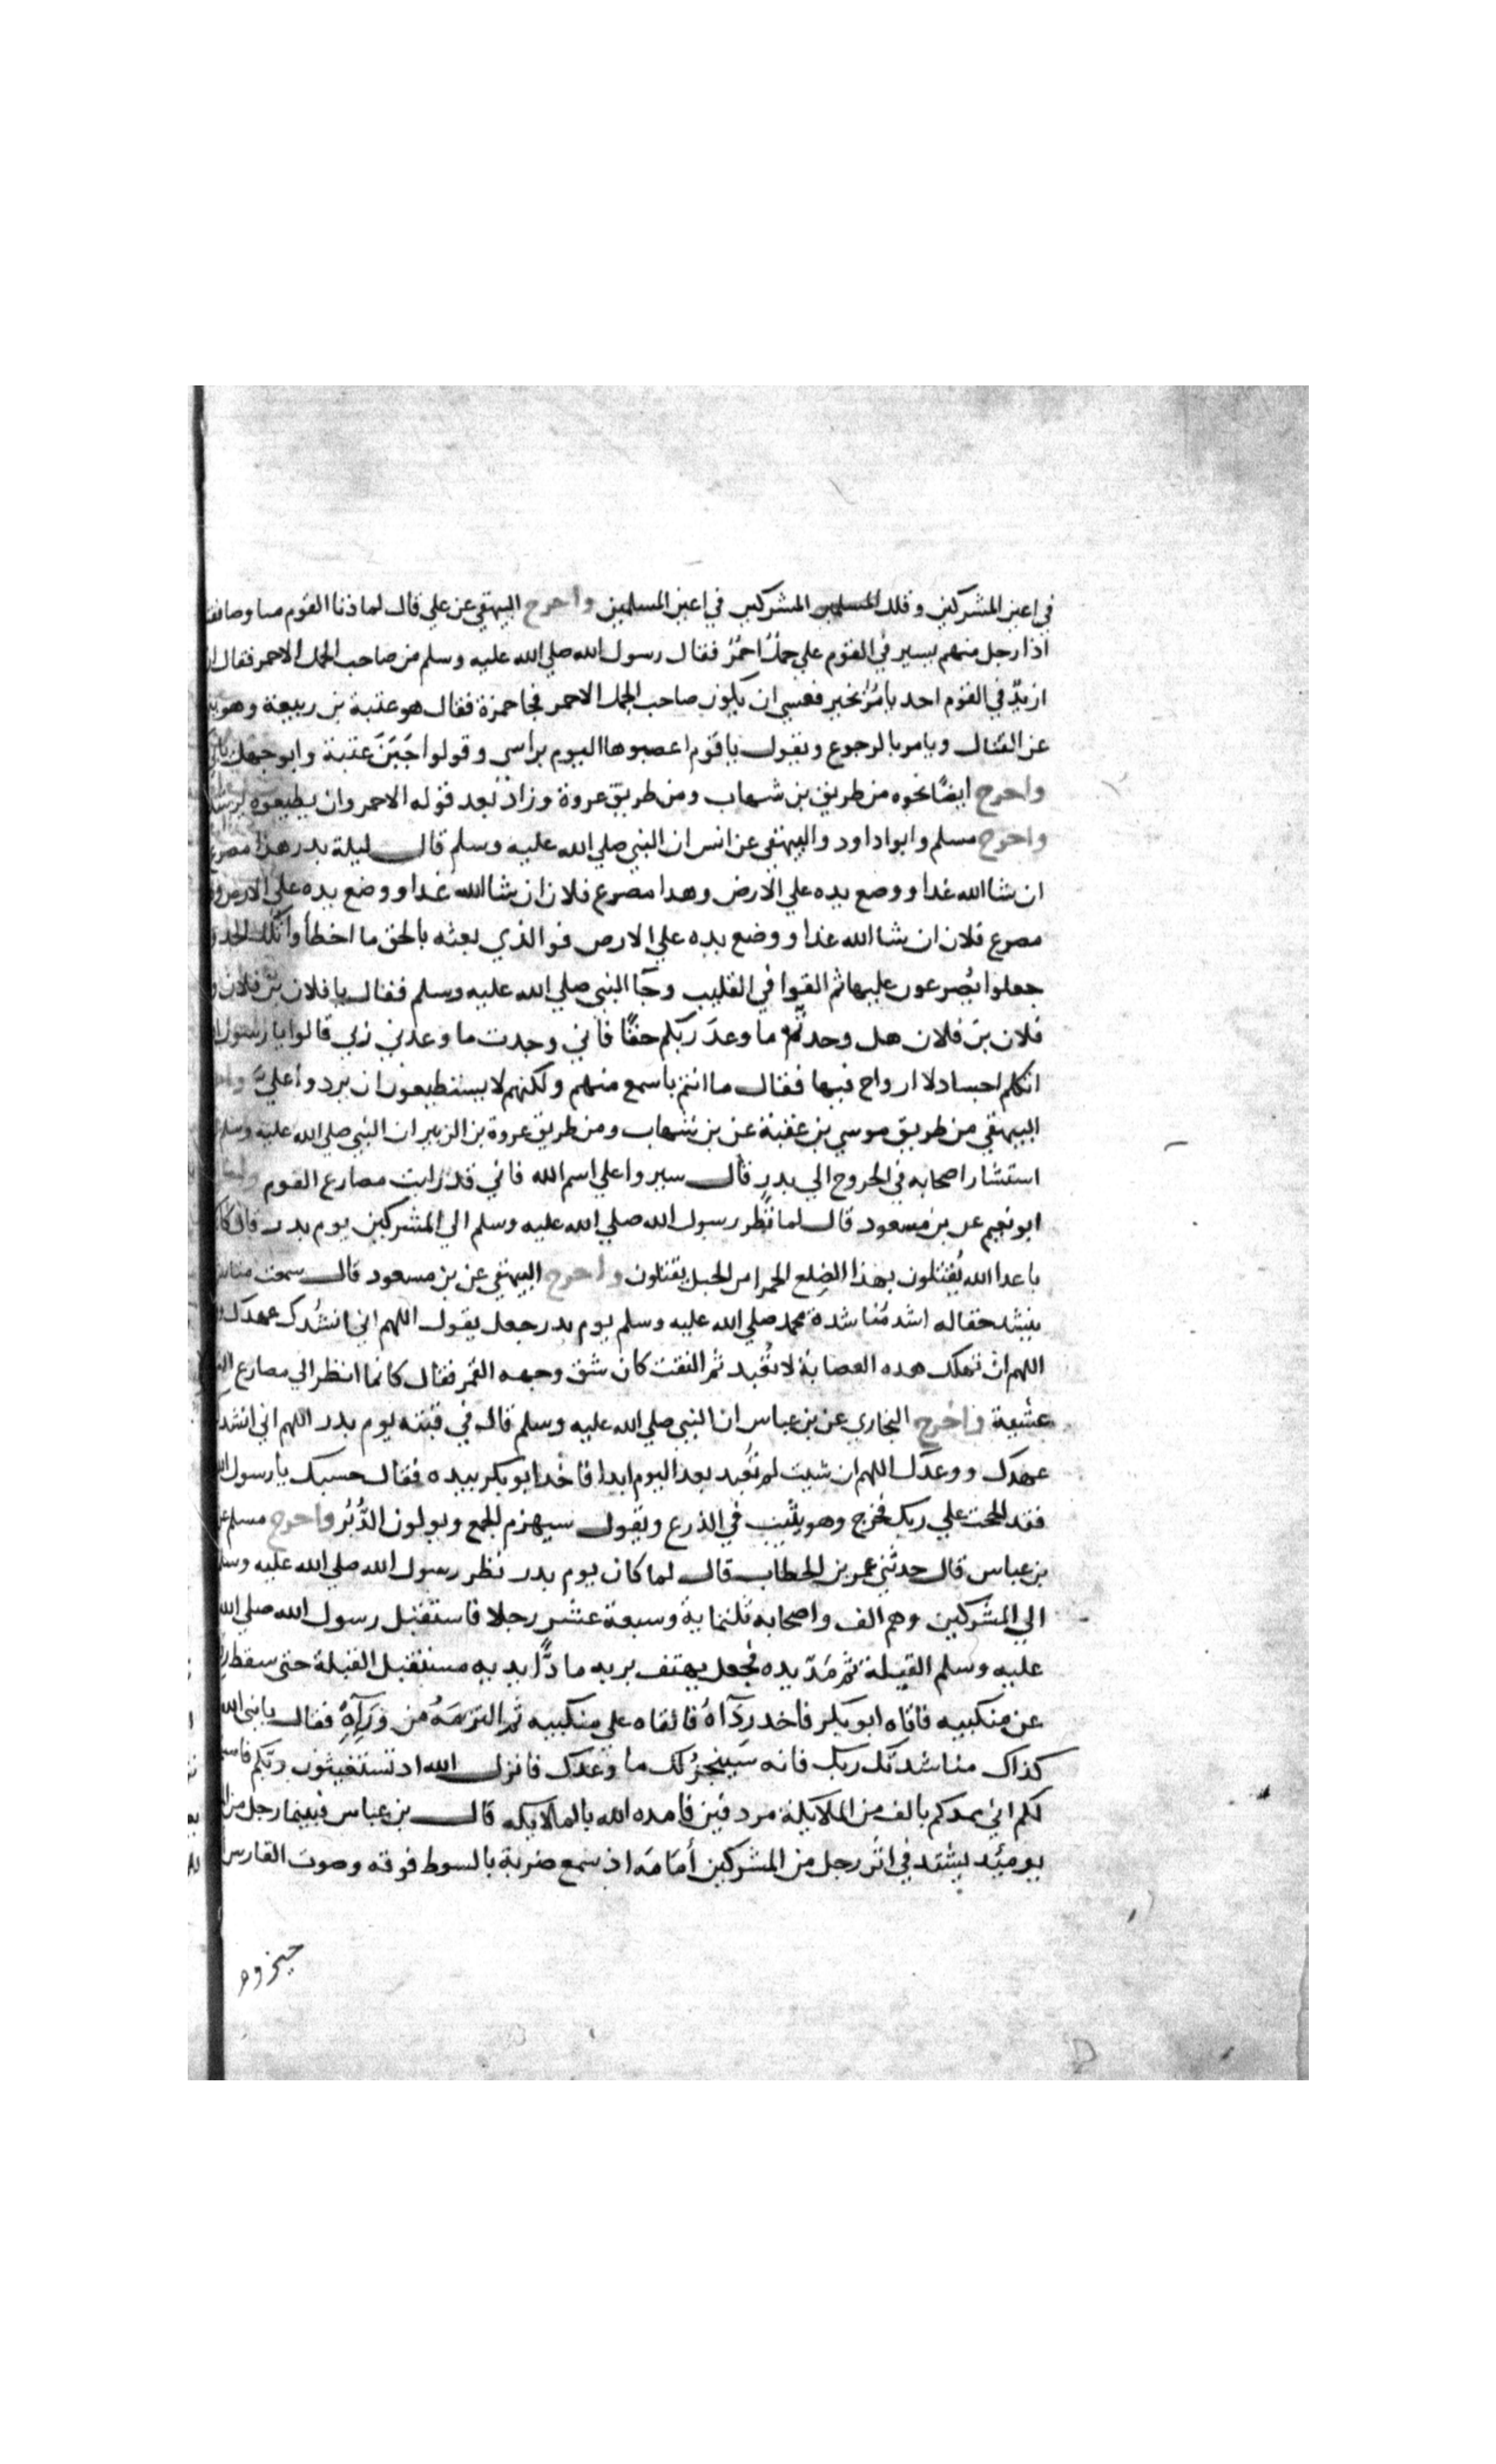 في اعين المشركين وقلل المشركين في اعين المسلمين واخرج البيهقي عن علي قال لما دنا القوم منا وصاففنا
اذا رجل منهم يسير في القوم علي جمل احمر فقال رسول الله صلي الله عليه وسلم من صاحب الجمل الاحمر فقال ان
ان يكن في القوم احد يامر بخير فعسي ان يكون صاحب الجمل الاحمر فجا حمزة فقال هو عتبة بن ربيعة وهو
عن القتال ويامر بالرجوع ويقول يا قوم اعصبوها اليوم براسي وقولوا جبن عتبة وابو جهل
واخرج ايضا نحوه من طريق بن شهاب ومن طريق عروة وزاد بعد قوله الاحمر وان يطيعوه
واخرج مسلم وابو اداود والبيهقي عن انس ان النبي صلي الله عليه وسلم قال ليلة بدر هذا مصرع
ان شا الله غدا ووضع يده علي الارض وهدا مصرع فلان ان شا الله غدا ووضع يده علي الارض
مصرع فلان ان شا الله غدا ووضع يده علي الارض فوالذي بعثه بالحق ما اخطأوا تلك الحدو
جعلوا يصرعون عليها ثم القوا في القليب وجا النبي صلي الله عليه وسلم فقال يا فلان بن فلان و
فلان بن فلان هل وجدتم ما وعد ربكم حقا فاني وجدت ما وعدني ربي قالوا يا رسول
اتكلم اجسادا لا ارواح فيها فقال ما انتم باسمع منهم ولكنهم لا يستطيعون ان يردوا علي
البيهقي من طريق موسي بن عقبة عن بن شهاب ومن طريق عروة بن الزبير ان النبي صلي الله عليه وسلم
استشار اصحابه في الخروج الي بدر قال سيروا علي اسم الله فاني قد رايت مصارع القوم
ابو نعيم عن بن مسعود قال لما نظر رسول الله صلي الله عليه وسلم الي المشركين يوم بدر قال
يا عدا الله يقتلون بهذا الضلع الحمرا من الجبل يقتلون واخرج البيهقي عن بن مسعود قال سمعت
ينشد حقا له اشد مناشدة محمد صلي الله عليه وسلم يوم بدر جعل يقول اللهم اني انشدك عهدك
اللهم ان تهلك هده العصابة لا تعبد ثم التفت كان شق وجهه القمر فقال كانما انظر الي مصارع
عشية واخرج البخاري عن بن عباس ان النبي صلي الله عليه وسلم قال في قبته يوم بدر اللهم اني انشد
عهدك ووعدك اللهم ان شيت لم تعبد بعد اليوم ابدا فاخد ابو بكر بيده فقال حسبك يا رسول
فقد الححت علي ربك فخرج وهو يثب في الدرع ويقول سيهزم الجمع ويولون الدبر واخرج مسلم عن
بن عباس قال حدثني عمر بن الخطاب قال لما كان يوم بدر نظر رسول الله صلي الله عليه وسلم
الي المشركين وهم الف واصحابه ثلثماية وسبعة عشر رجلا فاستقبل رسول الله صلي الله
عليه وسلم القبلة ثم مد يده فجعل يهتف بربه مادا يديه مستقبل القبلة حتى سقط
عن منكبيه فاتاه ابو بكر فاخد رداه فالقاه علي منكبيه ثم التزمه من ورآيه فقال يا نبي الله
كذاك مناشدتك ربك فانه سينجز لك ما وعدك فانزل الله اد تستغيثون ربكم
لكم اني ممدكم بالف من الملائكة مردفين فامده الله بالملايكه قال بن عباس فبينما رجل
يومئد يشتد في اثر رجل من المشركين أمامه اذ سمع ضربة بالسوط فوقه وصوت الفارس
حيزوم